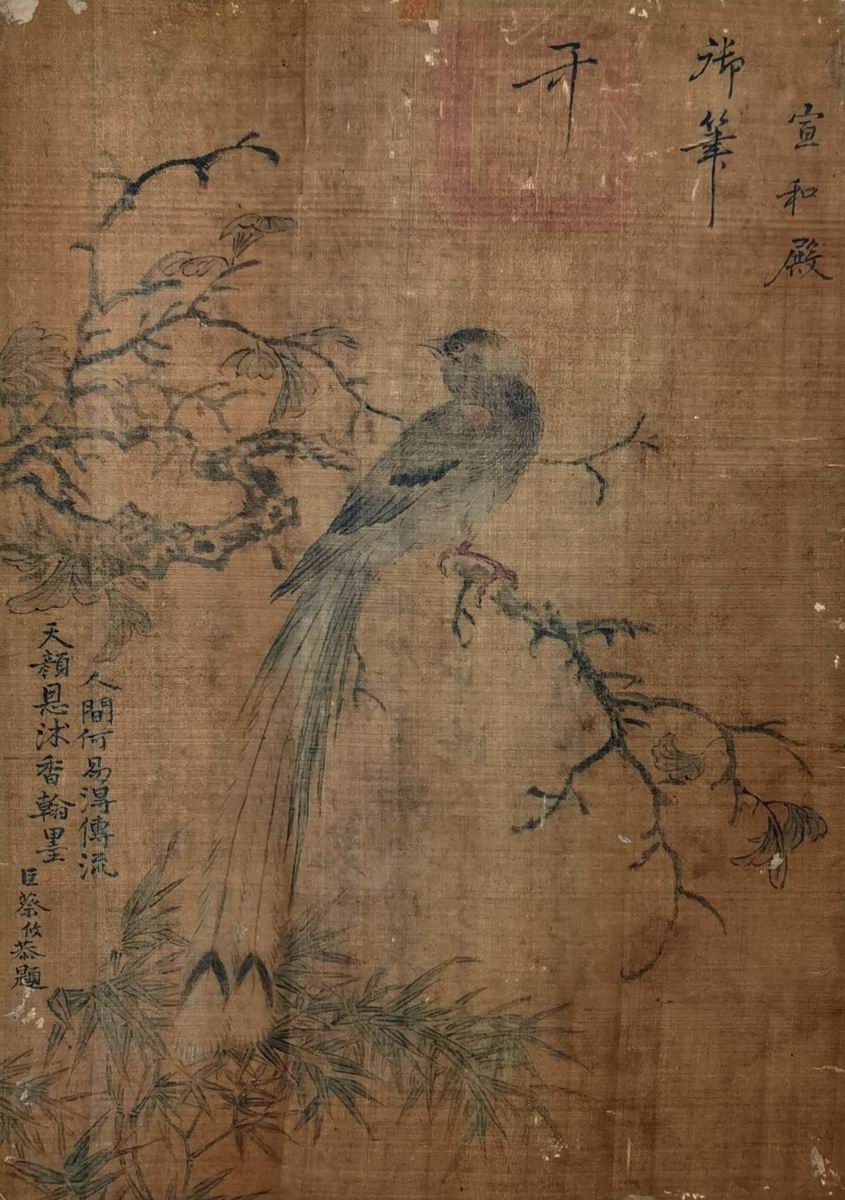 宣和殿
御筆
人間何易得傳流
天顏恩沐香翰墨
臣蔡攸恭題